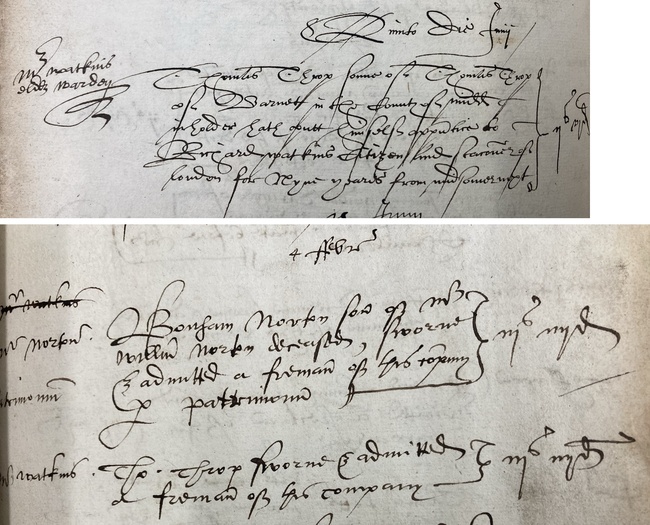 Quinto Die Junij
mr watkins
elder warden
Thomas Throp sonne of Thomas Throp
of Barnet in the County of midd
inholder hath putt himself apprntice to
Richard watkins Citizen and stacioner of
london for Nyne yeares from midsomer next
ijs vjd
4 ffebr
mr watkins
mr Norton
Bonham Norton son of mr
willm Norton deceased, sworne
& admitted a freman of this cōpany
p patrimonium
iijs iiijd
mr watkins
Tho. Throp sworne & admitted
a freman of this company
iijs iiijd